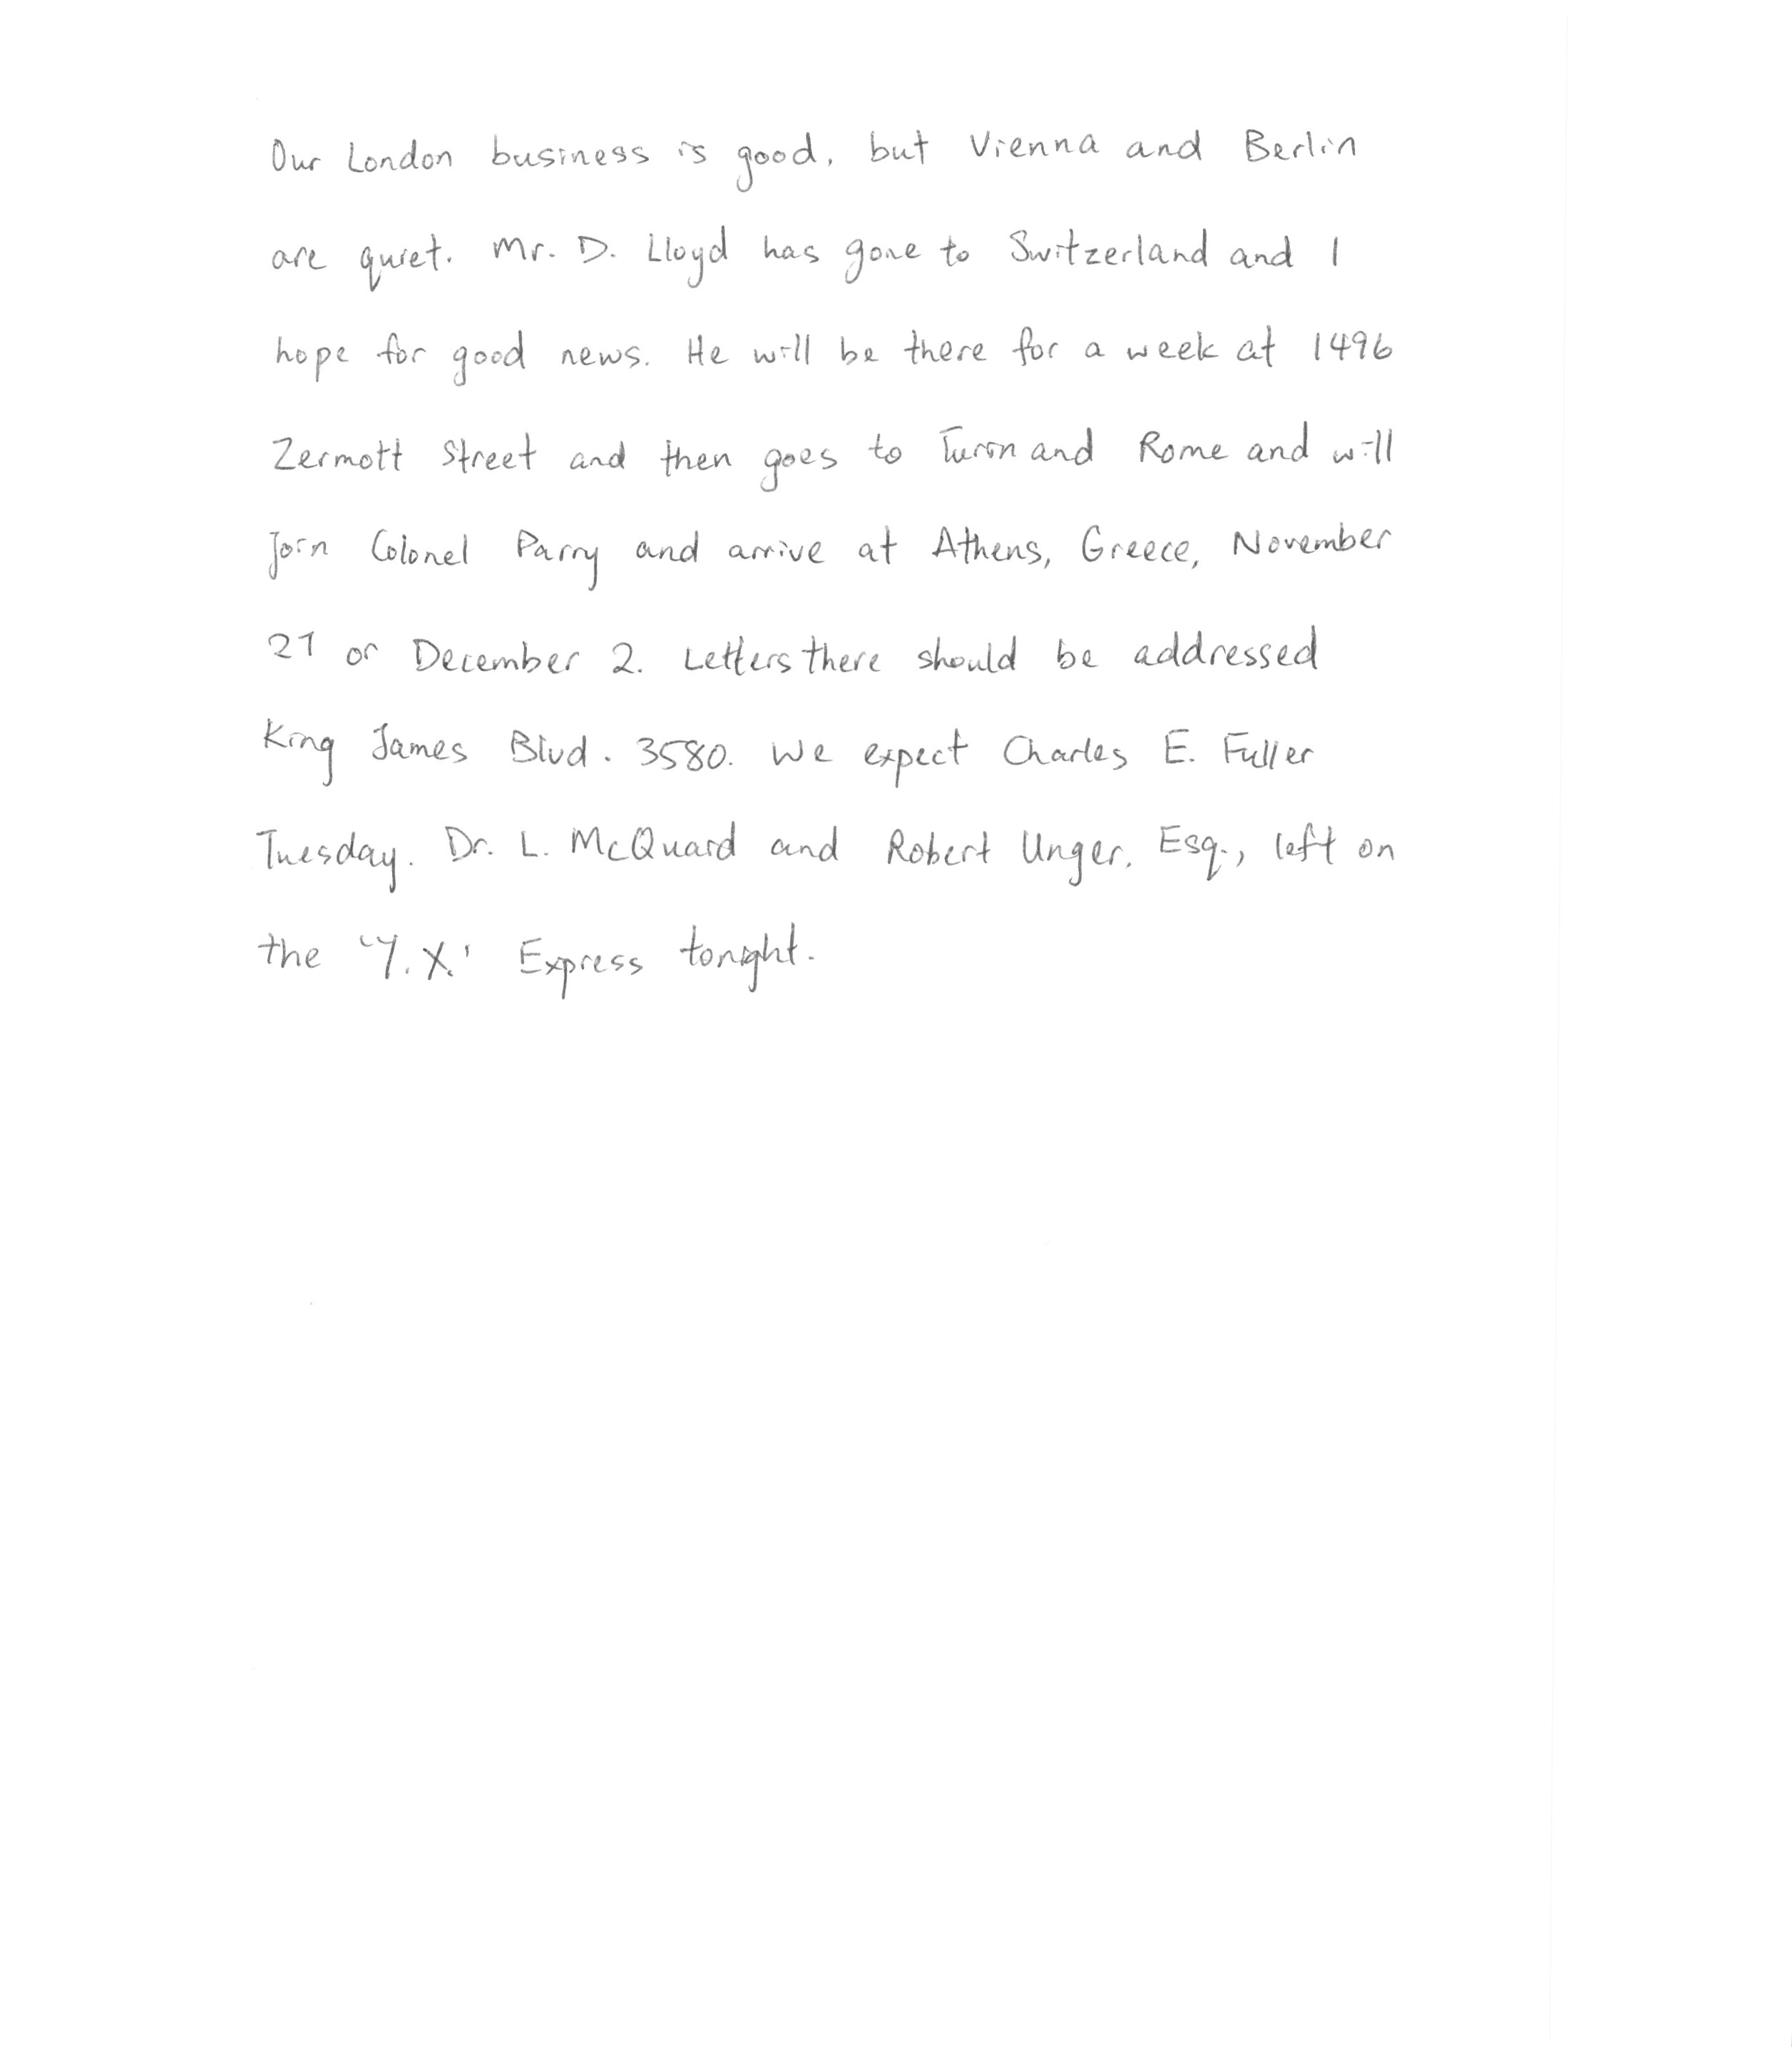 Our London business is good, but Vienna and Berlin
are quiet. Mr. D. Lloyd has gone to Switzerland and I
hope for good news. He will be there for a week at 1496
Zermott Street and then goes to Turin and Rome and will
join Colonel Parry and arrive at Athens, Greece, November
27 or December 2. Letters there should be addressed
King James Blvd. 3580. We expect Charles E. Fuller
Tuesday. Dr. L. McQuard and Robert Unger, Esq., left on
the 'Y.X.' Express tonight.